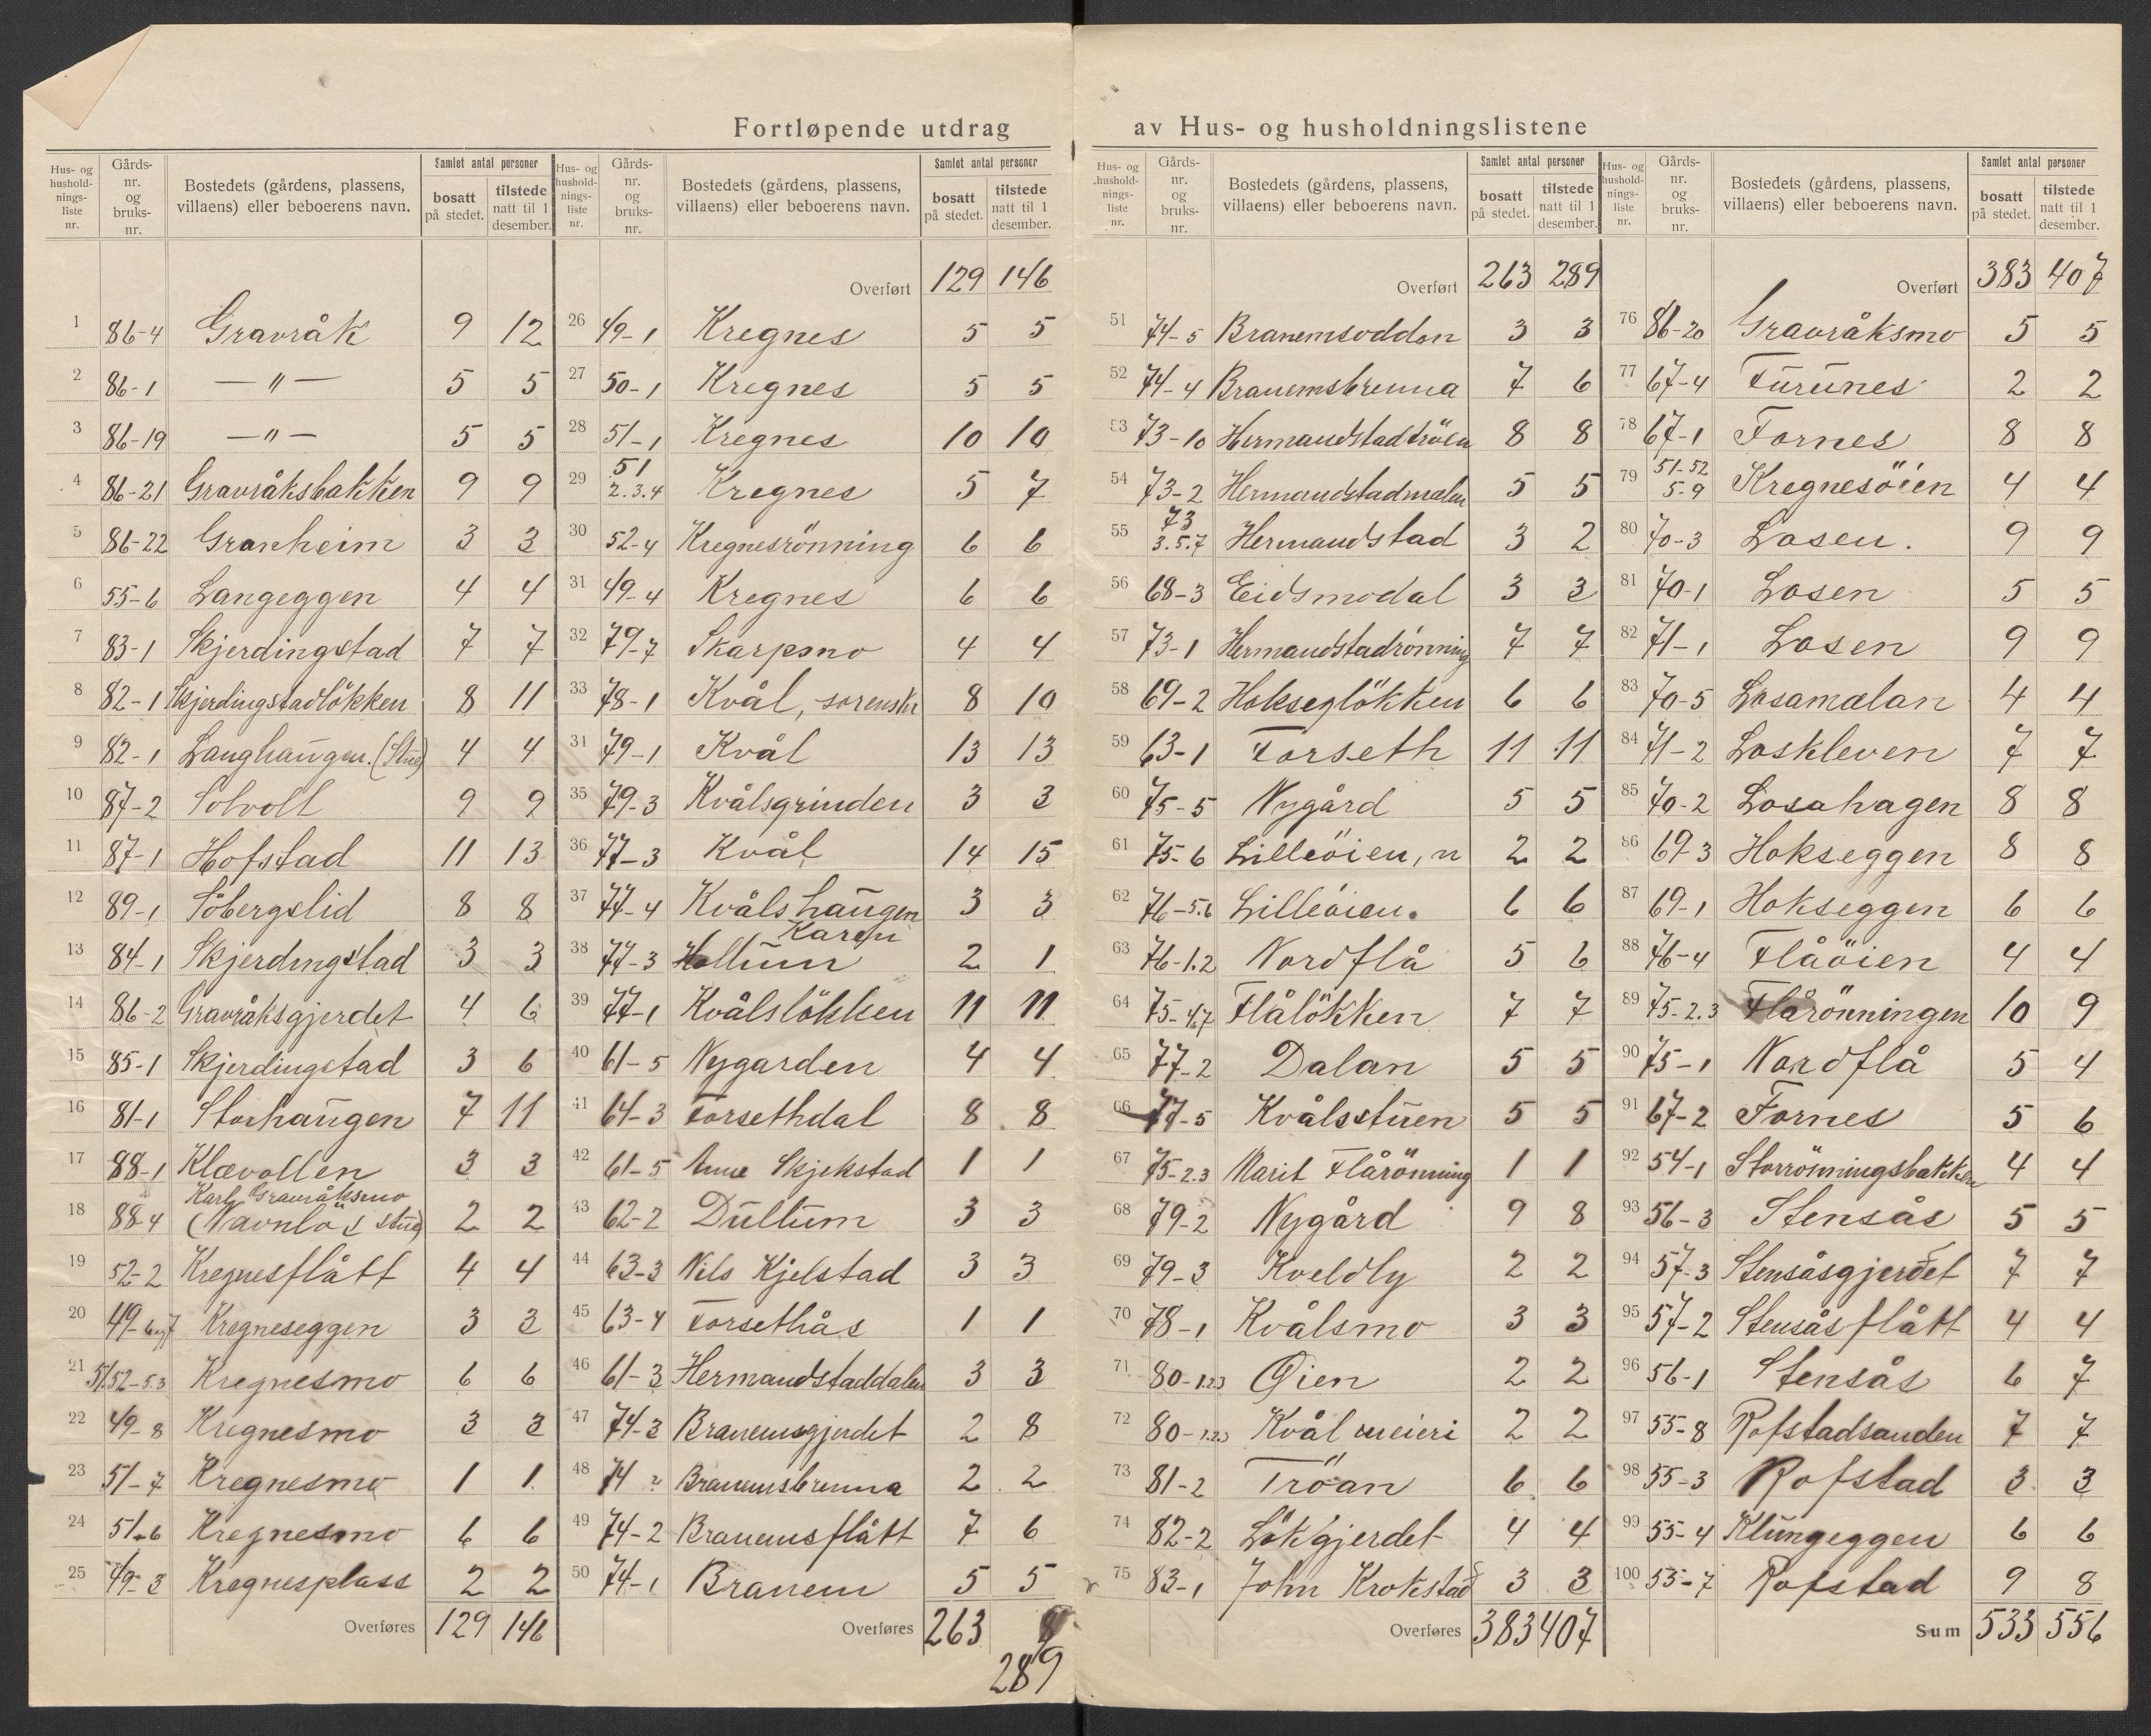 Fortløpende utdrag av Hus- og husholdningslistene
Hus- og hushold-nings-liste nr. | Gårds-nr. og bruks-nr. | Bostedets (gårdens, plassens, villaens) eller beboerens navn. | Samlet antal personer | bosatt på stedet. | tilstede natt til 1 desember.
1 86-4 Gravråk 9 12
2 86-1 —„— 5 5
3 86-19 —„— 5 5
4 86-21 Gravråksbakken 9 9
5 86-22 Granheim 3 3
6 55-6 Langeggen 4 4
7 83-1 Skjerdingstad 7 7
8 82-1 Skjerdingstadlökken 8 11
9 82-1 Langhaugen. (Stue) 4 4
10 87-2 Solvoll 9 9
11 87-1 Hofstad 11 13
12 89-1 Söbergslid 8 8
13 84-1 Skjerdingstad 3 3
14 86-2 Gravråksgjerdet 4 6
15 85-1 Skjerdingstad 3 6
16 81-1 Storhaugen 7 11
17 88-1 Klævollen 3 3
Karl Gravråksmo
18 88-4 (Navnlös stue) 2 2
19 52-2 Kregnesflått 4 4
20 49-6og7 Kregneseggen 3 3
21 51.52-5.3 Kregnesmo 6 6
22 49-8 Kregnesmo 3 3
23 51-7 Kregnesmo 1 1
24 51-6 Kregnesmo 6 6
25 49-3 Kregnesplass 2 2
Overføres 129 146
Hus- og hushold-nings-liste nr. | Gårds-nr. og bruks-nr. | Bostedets (gårdens, plassens, villaens) eller beboerens navn. | Samlet antal personer | bosatt på stedet. | tilstede natt til 1 desember.
Overført 129 146
26 49-1 Kregnes 5 5
27 50-1 Kregnes 5 5
28 51-1 Kregnes 10 10
29 51 2.3.4 Kregnes 5 7
30 52-4 Kregnesrönning 6 6
31 49-4 Kregnes 6 6
32 79-7 Skarpsno 4 4
33 78-1 Kvål, sorenskr 8 10
31 79-1 Kvål 13 13
35 79-3 Kvålsgrinden 3 3
36 77-3 Kvål 14 15
37 77-4 Kvålshaugen 3 3
Karen
38 77-3 Hollum 2 1
39 77-1 Kvålslökken 11 11
40 61-5 Nygarden 4 4
41 64-3 Forsethdal 8 8
42 61-5 Anne Skjekstad 1 1
43 62-2 Dullum 3 3
44 63-3 Nils Kjelstad 3 3
45 63-4 Forsethås 1 1
46 61-3 Hermandstaddalen 3 3
47 74-3 Branemsgjerdet 2 8
48 74 ? Branemsbrenna 2 2
49 74-2 Branemsflått 7 6
50 74-1 Branem 5 5
Overføres 263
289
Hus- og hushold-nings-liste nr. | Gårds-nr. og bruks-nr. | Bostedets (gårdens, plassens, villaens) eller beboerens navn. | Samlet antal personer | bosatt på stedet. | tilstede natt til 1 desember.
Overført 263 289
51 74-5 Branemsodden 3 3
52 74-4 Branemsbrenna 7 6
53 73-10 Hermandstadtröen 8 8
54 73-2 Hermandstadmælen 5 5
55 73 3.5.7 Hermandstad 3 2
56 68-3 Eidsmodal 3 3
57 73-1 Hermandstadrönning 7 7
58 69-2 Hokseglökken 6 6
59 63-1 Forseth 11 11
60 75-5 Nygård 5 5
61 75-6 Lilleöien, n 2 2
62 76-5.6 Lilleöien. 6 6
63 76-1.2 Nordflå 5 6
64 75-4.7 Flålökken 7 7
65 77-2 Dalan 5 5
66 77-5 Kvålsstuen 5 5
67 75-2.3 Marit Flårönning 1 1
68 79-2 Nygård 9 8
69 79-3 Kveldly 2 2
70 78-1 Kvålsmo 3 3
71 80-1.2.3 Øien 2 2
72 80-1.2.3 Kvål meieri 2 2
73 81-2 Tröan 6 6
74 82-2 Lökgjerdet 4 4
75 83-1 John Krokstad 3 3
Overføres 383 407
Hus- og hushold-nings-liste nr. | Gårds-nr. og bruks-nr. | Bostedets (gårdens, plassens, villaens) eller beboerens navn. | Samlet antal personer | bosatt på stedet. | tilstede natt til 1 desember.
Overført 383 407
76 86-20 Gravråksmo 5 5
77 67-4 Furunes 2 2
78 67-1 Fornes 8 8
79 51-52 5-9 Kregnesöien 4 4
80 70-3 Losen. 9 9
81 70-1 Losen 5 5
82 71-1 Losen 9 9
83 70-5 Losamælan 4 4
84 71-2 Loskleven 7 7
85 70-2 Losahagen 8 8
86 69-3 Hokseggen 8 8
87 69-1 Hokseggen 6 6
88 76-4 Flåöien 4 4
89 75-2.3 Flårönningen 10 9
90 75-1 Nordflå 5 4
91 67-2 Fornes 5 6
92 54-1 Storrönningsbakken 4 4
93 56-3 Stensås 5 5
94 57-3 Stensåsgjerdet 7 7
95 57-2 Stensåsflått 4 4
96 56-1 Stensås 6 7
97 55-8 Rofstadsanden 7 7
98 55-3 Rofstad 3 3
99 55-4 Klungeggen 6 6
100 55-7 Rofstad 9 8
Sum 533 556